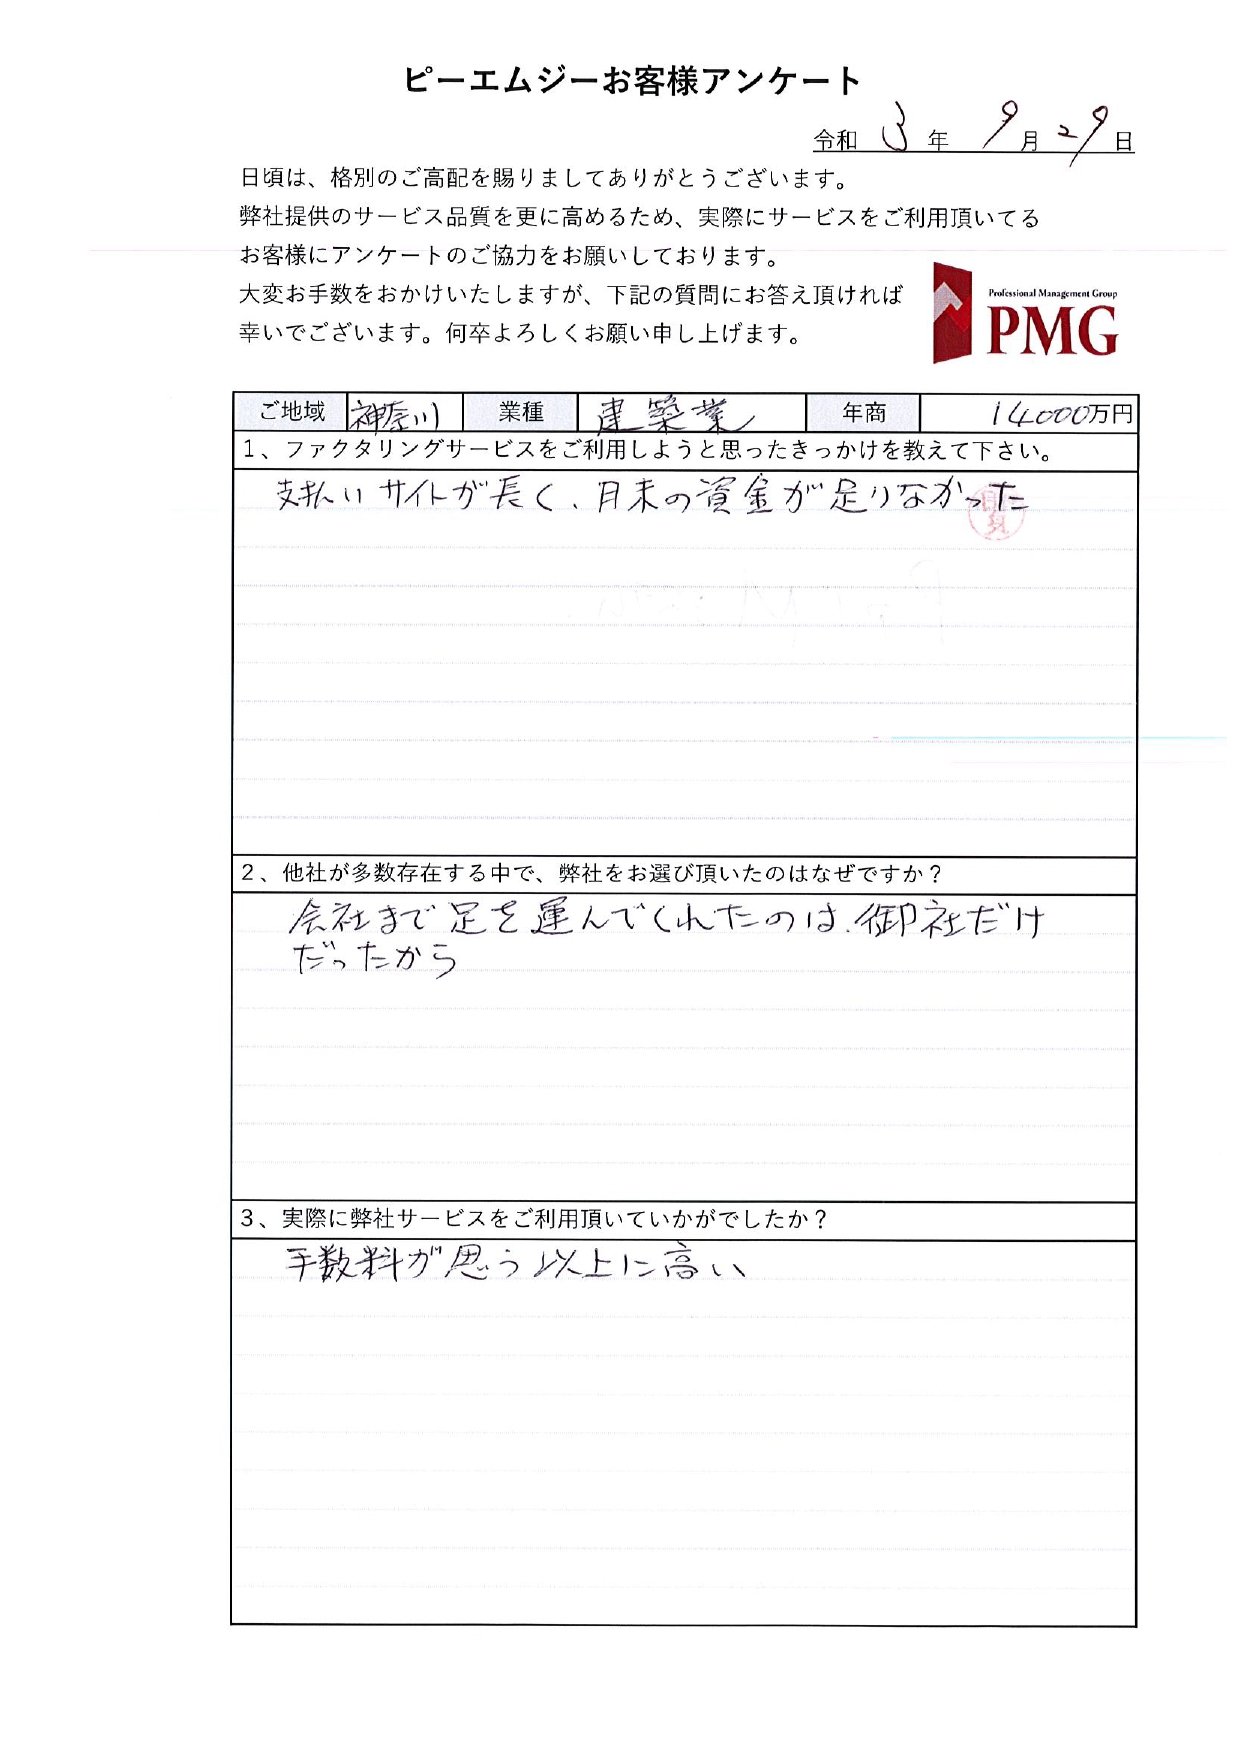 ピーエムジーお客様アンケート
令和 3 年 9 月 29 日
日頃は、格別のご高配を賜りましてありがとうございます。
弊社提供のサービス品質を更に高めるため、実際にサービスをご利用頂いてる
お客様にアンケートのご協力をお願いしております。
大変お手数をおかけいたしますが、下記の質問にお答え頂ければ
幸いでございます。何卒よろしくお願い申し上げます。
Professional Management Group
PMG
ご地域 神奈川 業種 建築業 年商 14000万円
1、ファクタリングサービスをご利用しようと思ったきっかけを教えて下さい。
支払いサイトが長く、月末の資金が足りなかった
2、他社が多数存在する中で、弊社をお選び頂いたのはなぜですか？
会社まで足を運んでくれたのは、御社だけ
だったから
3、実際に弊社サービスをご利用頂いていかがでしたか？
手数料が思う以上に高い